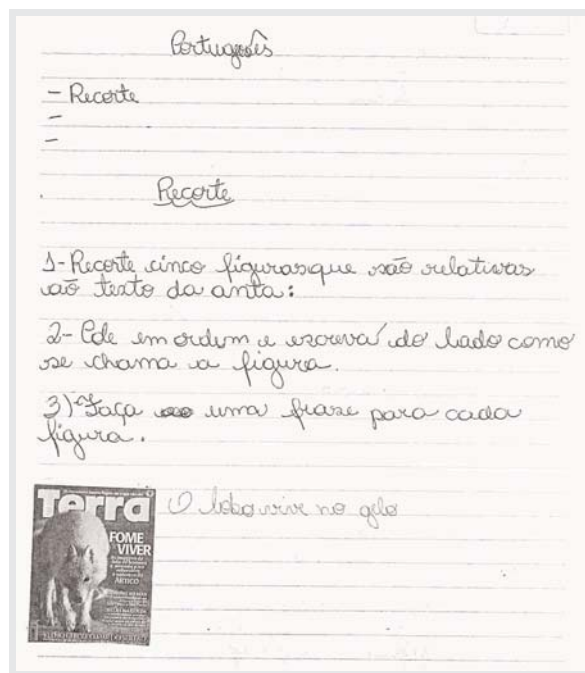 Português
- Recorte
-
-
Recorte
1- Recorte cinco figuras que são relativas
ao texto da anta:
2- Cole em ordem e escreva do lado como
se chama a figura.
3) Faça uma frase para cada
figura.
Terra
O lobo vive no gelo
FOME
VIVER
ÁRTICO